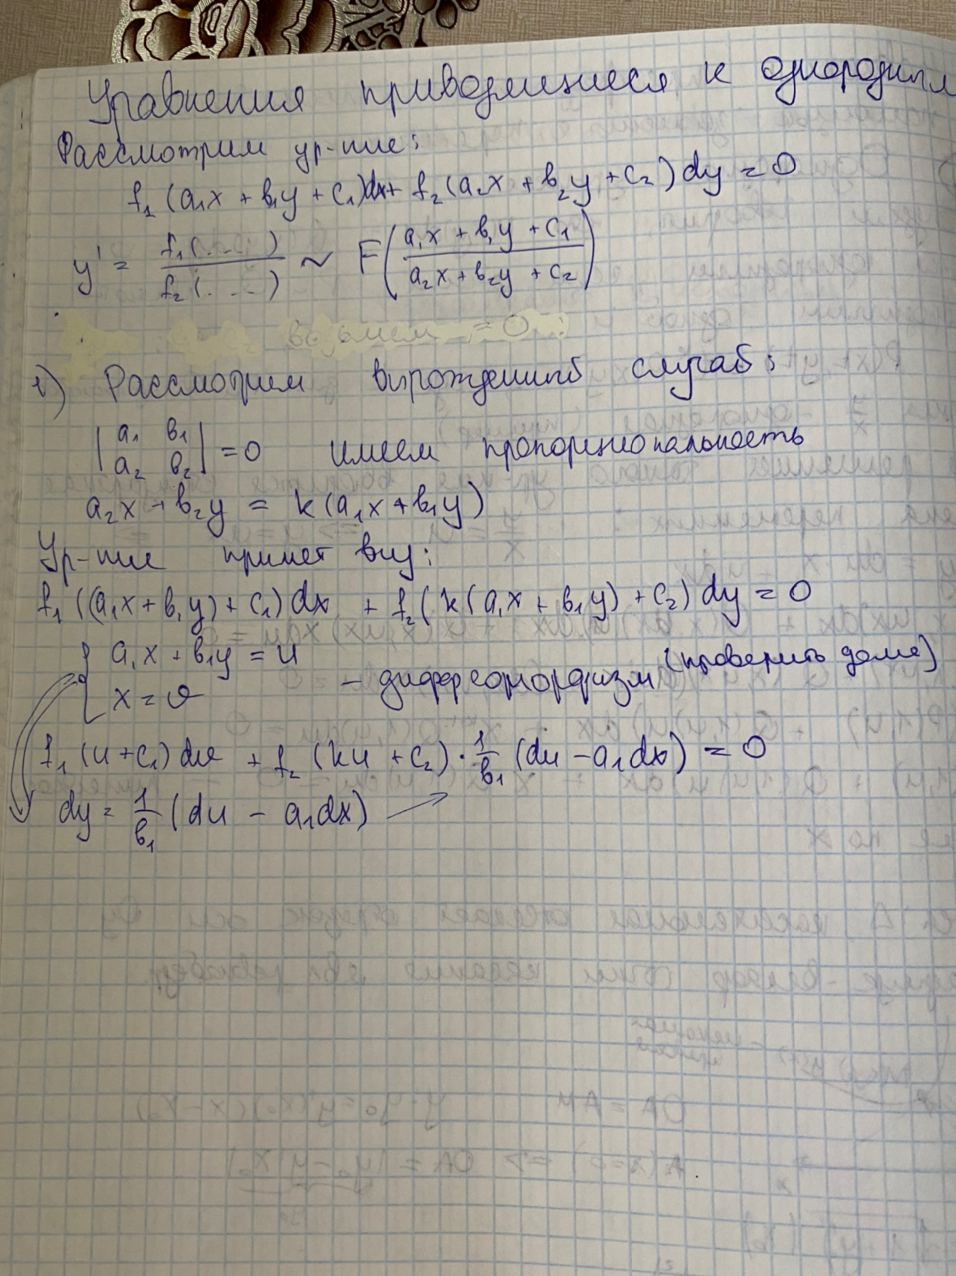 Уравнения приводящиеся к однородным
Рассмотрим ур-ние:
f₁(a₁x + b₁y + c₁)dx + f₂(a₂x + b₂y + c₂)dy = 0
y' = f₁(...) / f₂(...) ~ F((a₁x + b₁y + c₁) / (a₂x + b₂y + c₂))
возьмем = 0 :
1) Рассмотрим вырожденный случай:
|a₁ b₁|
|a₂ b₂| = 0 имеем пропорциональность
a₂x + b₂y = k(a₁x + b₁y)
Ур-ние примет вид:
f₁((a₁x + b₁y) + c₁)dx + f₂(k(a₁x + b₁y) + c₂)dy = 0
{ a₁x + b₁y = u
x = v - диффеоморфизм (проверить дома)
f₁(u + c₁)dx + f₂(ku + c₂) · 1/b₁ (du - a₁dx) = 0
dy = 1/b₁ (du - a₁dx) →